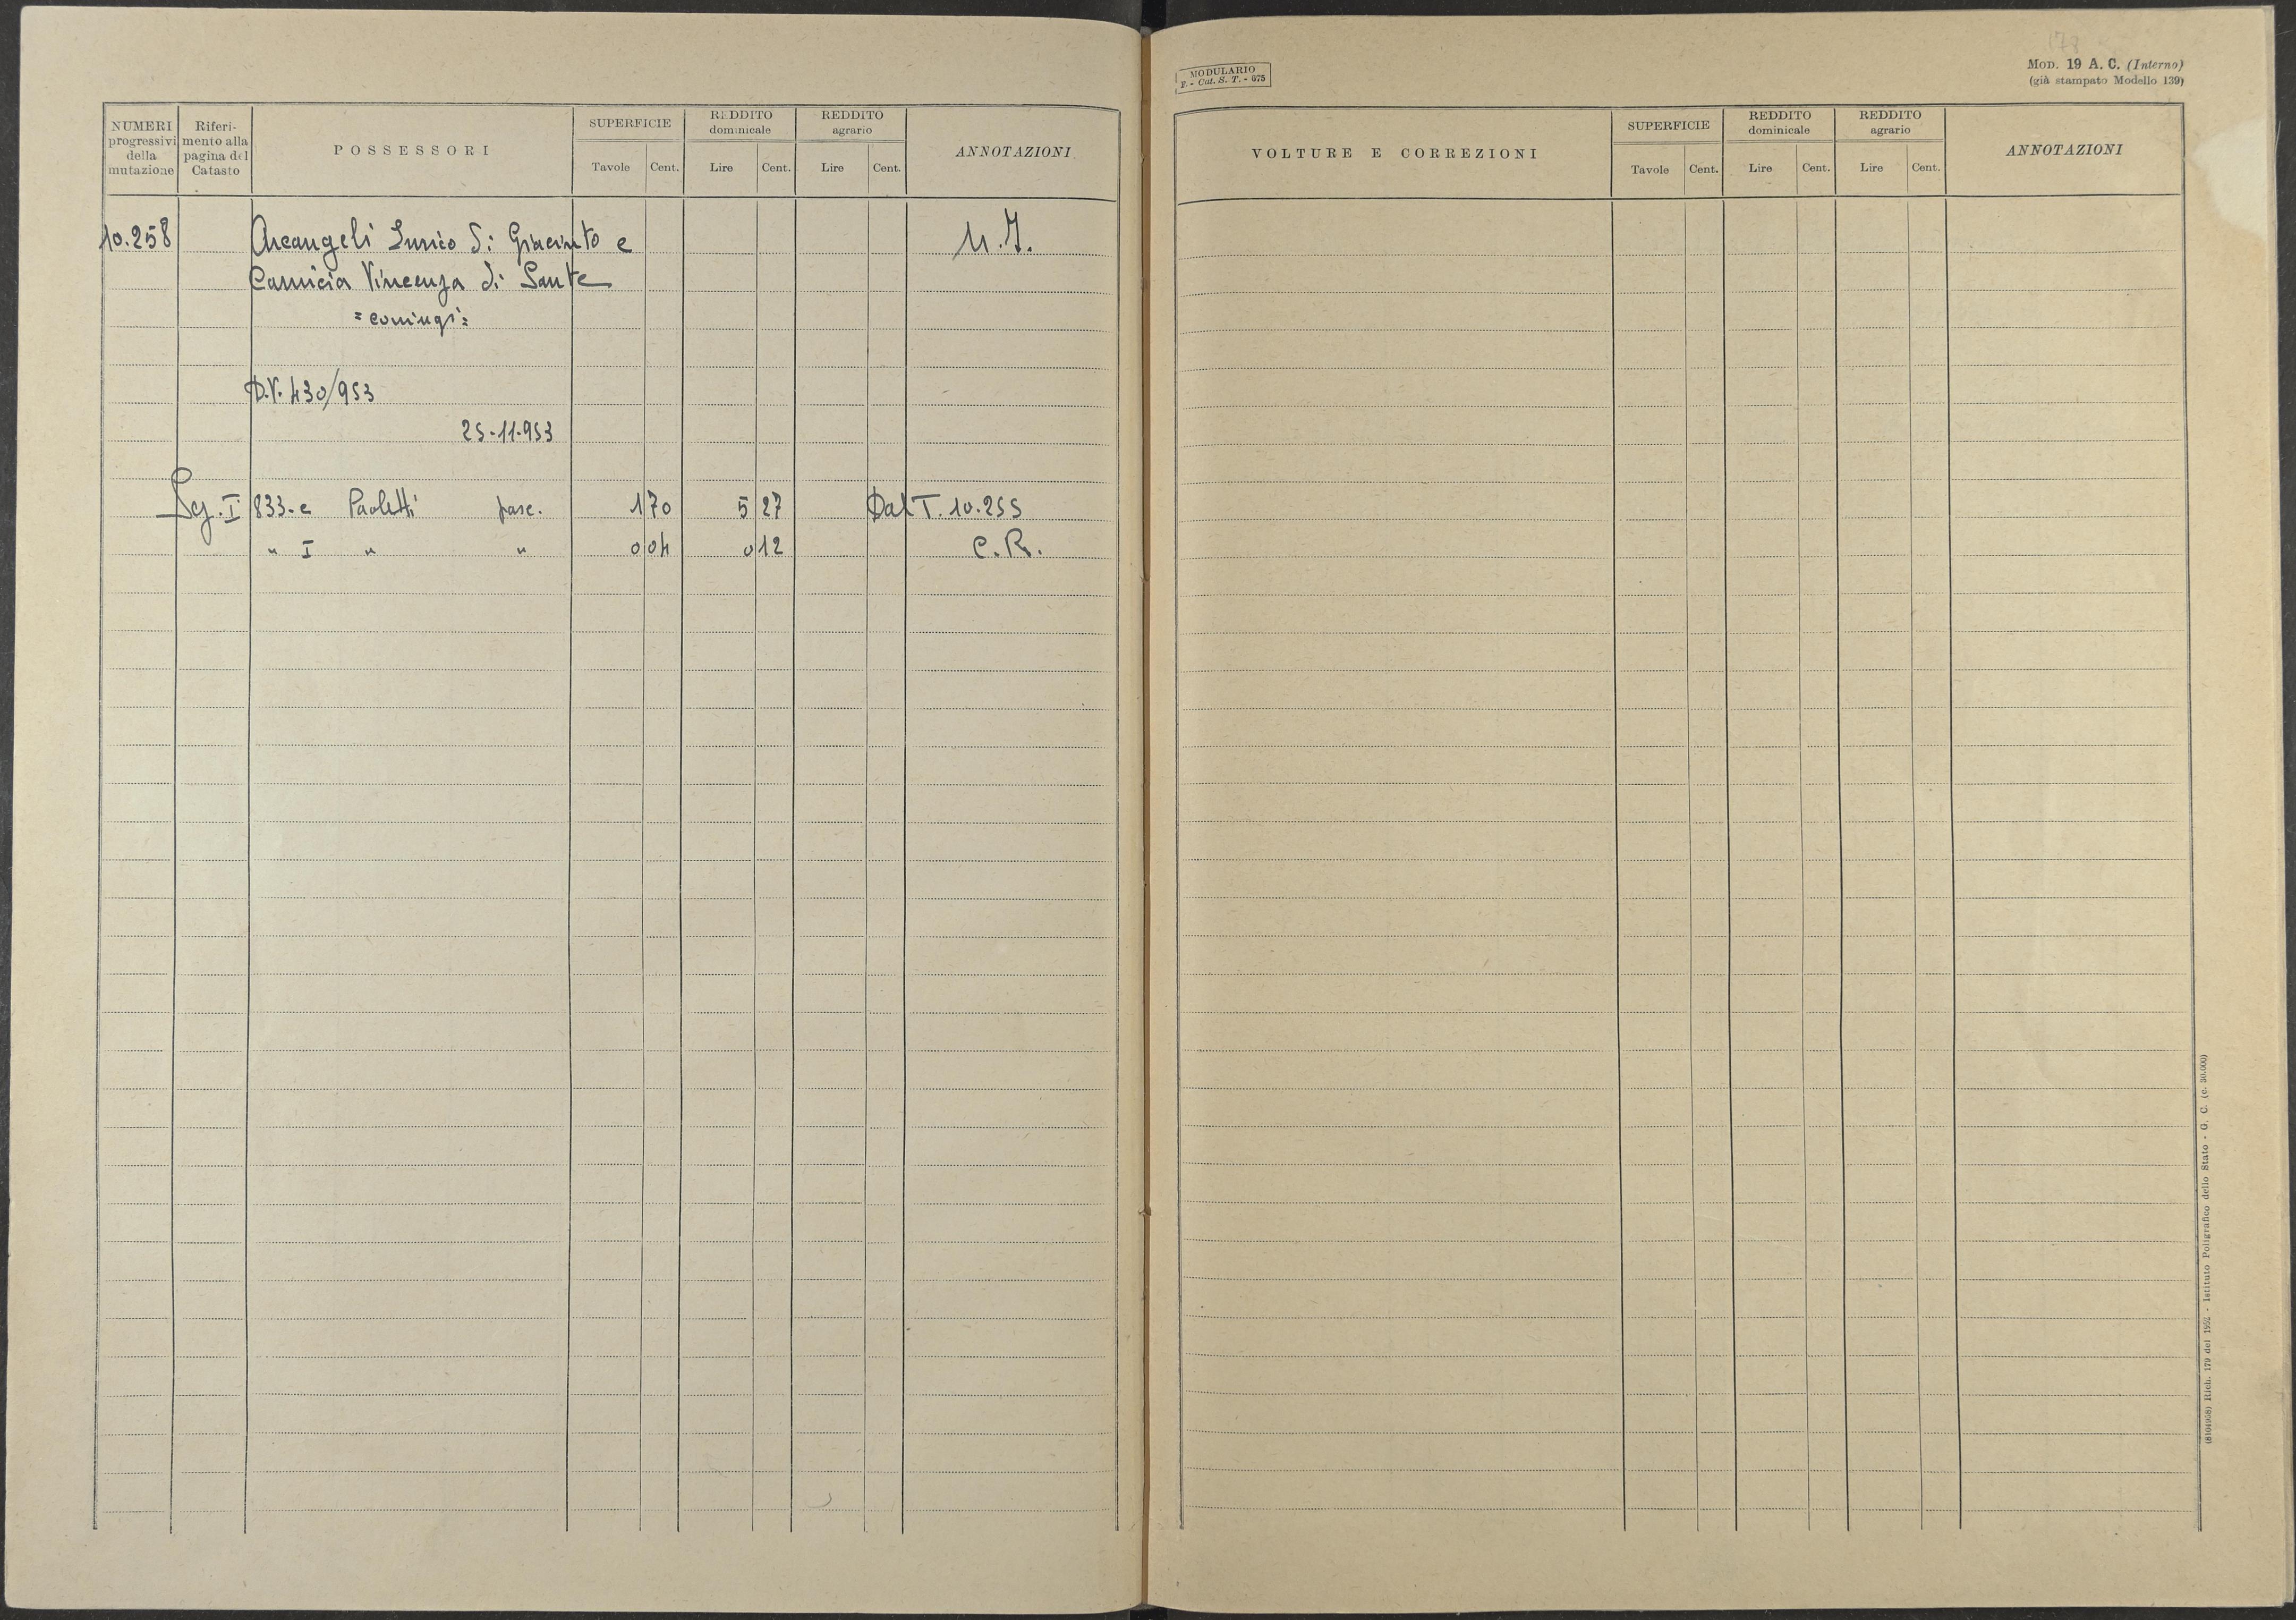 NUMERI progressivi della mutazione
Riferimento alla pagina del Catasto
POSSESSORI
SUPERFICIE
Tavole Cent.
REDDITO dominicale
Lire Cent.
REDDITO agrario
Lire Cent.
ANNOTAZIONI
10.258 Arcangeli Enrico di Giacinto e
Camicia Vincenza di Sante
=coniugi=
D.V. 430/953
25-11-953
Sez. I 833-c Paoletti pasc. 1 70 5 27 Dal T. 10.255
" I " " 0 04 0 12 C.R.
MODULARIO
F. - Cat. S. T. - 675
178
MOD. 19 A. C. (Interno)
(già stampato Modello 139)
VOLTURE E CORREZIONI
SUPERFICIE
Tavole Cent.
REDDITO dominicale
Lire Cent.
REDDITO agrario
Lire Cent.
ANNOTAZIONI
(8104958) Rich. 179 del 1952 - Istituto Poligrafico dello Stato - G. C. (c. 30.000)